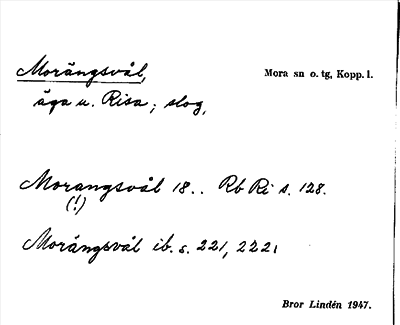 Morängsvål, Mora sn o. tg, Kopp. l.
äga u. Risa; slog,
Morangsvål 18.. Rb Ri s. 128.
(!)
Morängsvål ib. s. 221, 222,
Bror Lindén 1947.